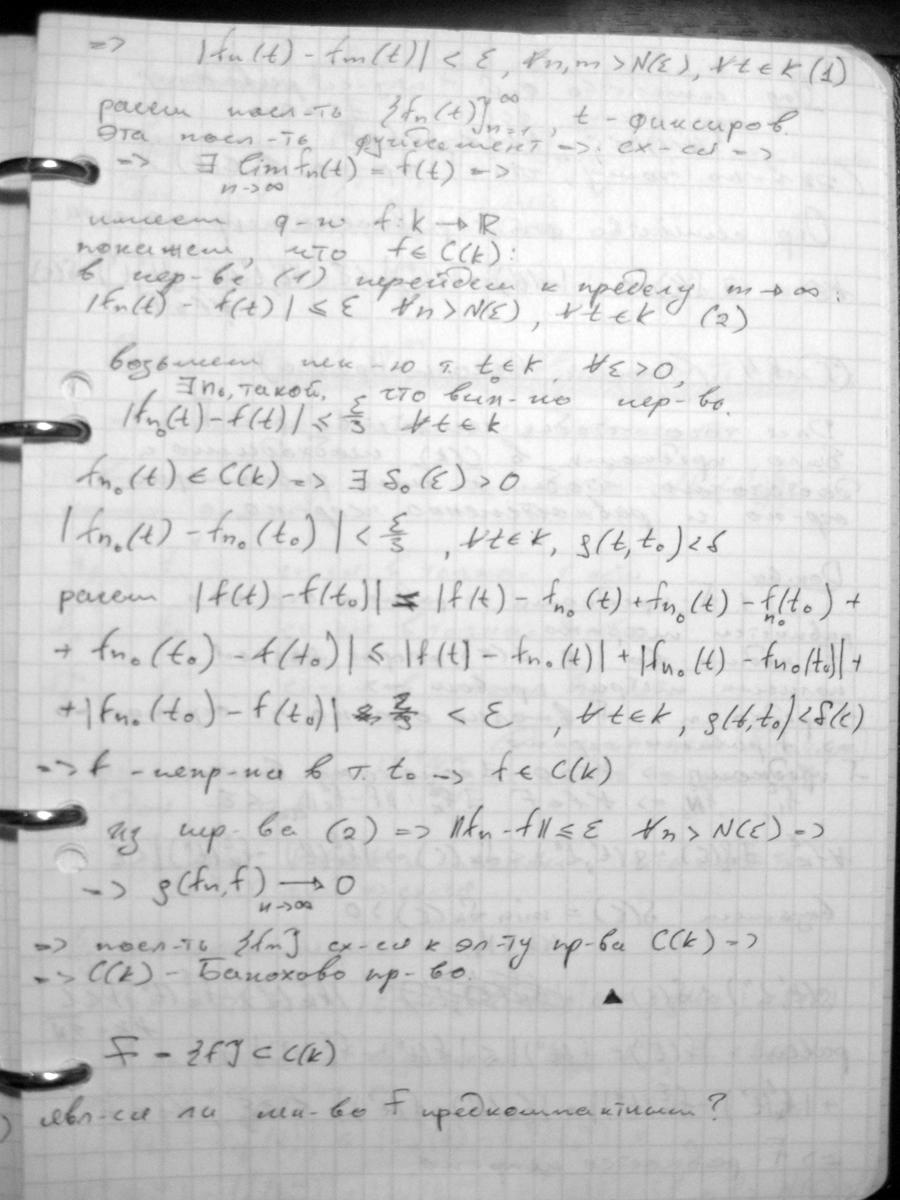 => |fn(t) - fm(t)| < ε, ∀n,m > N(ε), ∀t ∈ K (1)
рассм посл-ть {fn(t)}∞n=1, t - фиксиров.
Эта посл-ть, фундамент => сх-ся =>
=> ∃ lim fn(t) = f(t) =>
n→∞
имеем ф-ю f: K → ℝ
покажем, что f ∈ C(K):
в нер-ве (1) перейдем к пределу m→∞:
|fn(t) - f(t)| ≤ ε ∀n > N(ε), ∀t ∈ K (2)
возьмем нек-ю т. t₀ ∈ K, ∀ε > 0,
∃n₀, такой, что вып-но нер-во.
|fn₀(t) - f(t)| ≤ ε/3 ∀t ∈ K
fn₀(t) ∈ C(K) => ∃ δ₀(ε) > 0
|fn₀(t) - fn₀(t₀)| < ε/3, ∀t ∈ K, ρ(t,t₀) < δ
рассм |f(t) - f(t₀)| = |f(t) - fn₀(t) + fn₀(t) - fn₀(t₀) +
+ fn₀(t₀) - f(t₀)| ≤ |f(t) - fn₀(t)| + |fn₀(t) - fn₀(t₀)| +
+ |fn₀(t₀) - f(t₀)| < ε, ∀t ∈ K, ρ(t,t₀) < δ(ε)
=> f - непр-на в т. t₀ => f ∈ C(K)
из нер-ва (2) => ||fn - f|| ≤ ε ∀n > N(ε) =>
=> ρ(fn,f) → 0
n→∞
=> посл-ть {fn} сх-ся к эл-ту пр-ва C(K) =>
=> C(K) - Банохово пр-во.
▲
F - {f} ⊂ C(K)
) явл-ся ли мн-во F предкомпактным?